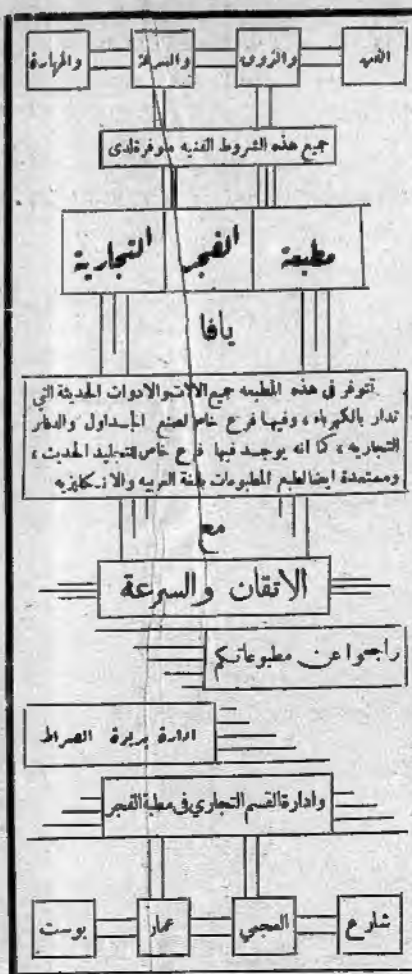 الفن والذوق والسرعة والمهارة
جميع هذه الشروط الفنيه متوفرة لدى
مطبعة الفجر التجارية
يافا
تتوفر فى هذه المطبعه جميع الالات والادوات الحديثة التي
تدار بالكهرباء ، وفيها فرع خاص لصنع الجداول والدفاتر
التجاريه ، كما انه يوجد فيها فرع خاص للتجليد الحديث ،
ومستعدة ايضا لطبع المطبوعات باللغة العربيه والانكليزيه
مع
الاتقان والسرعة
راجعوا عن مطبوعاتكم
ادارة جريدة الصراط
وادارة القسم التجاري فى مطبعة الفجر
شارع العجمي عمار بوست